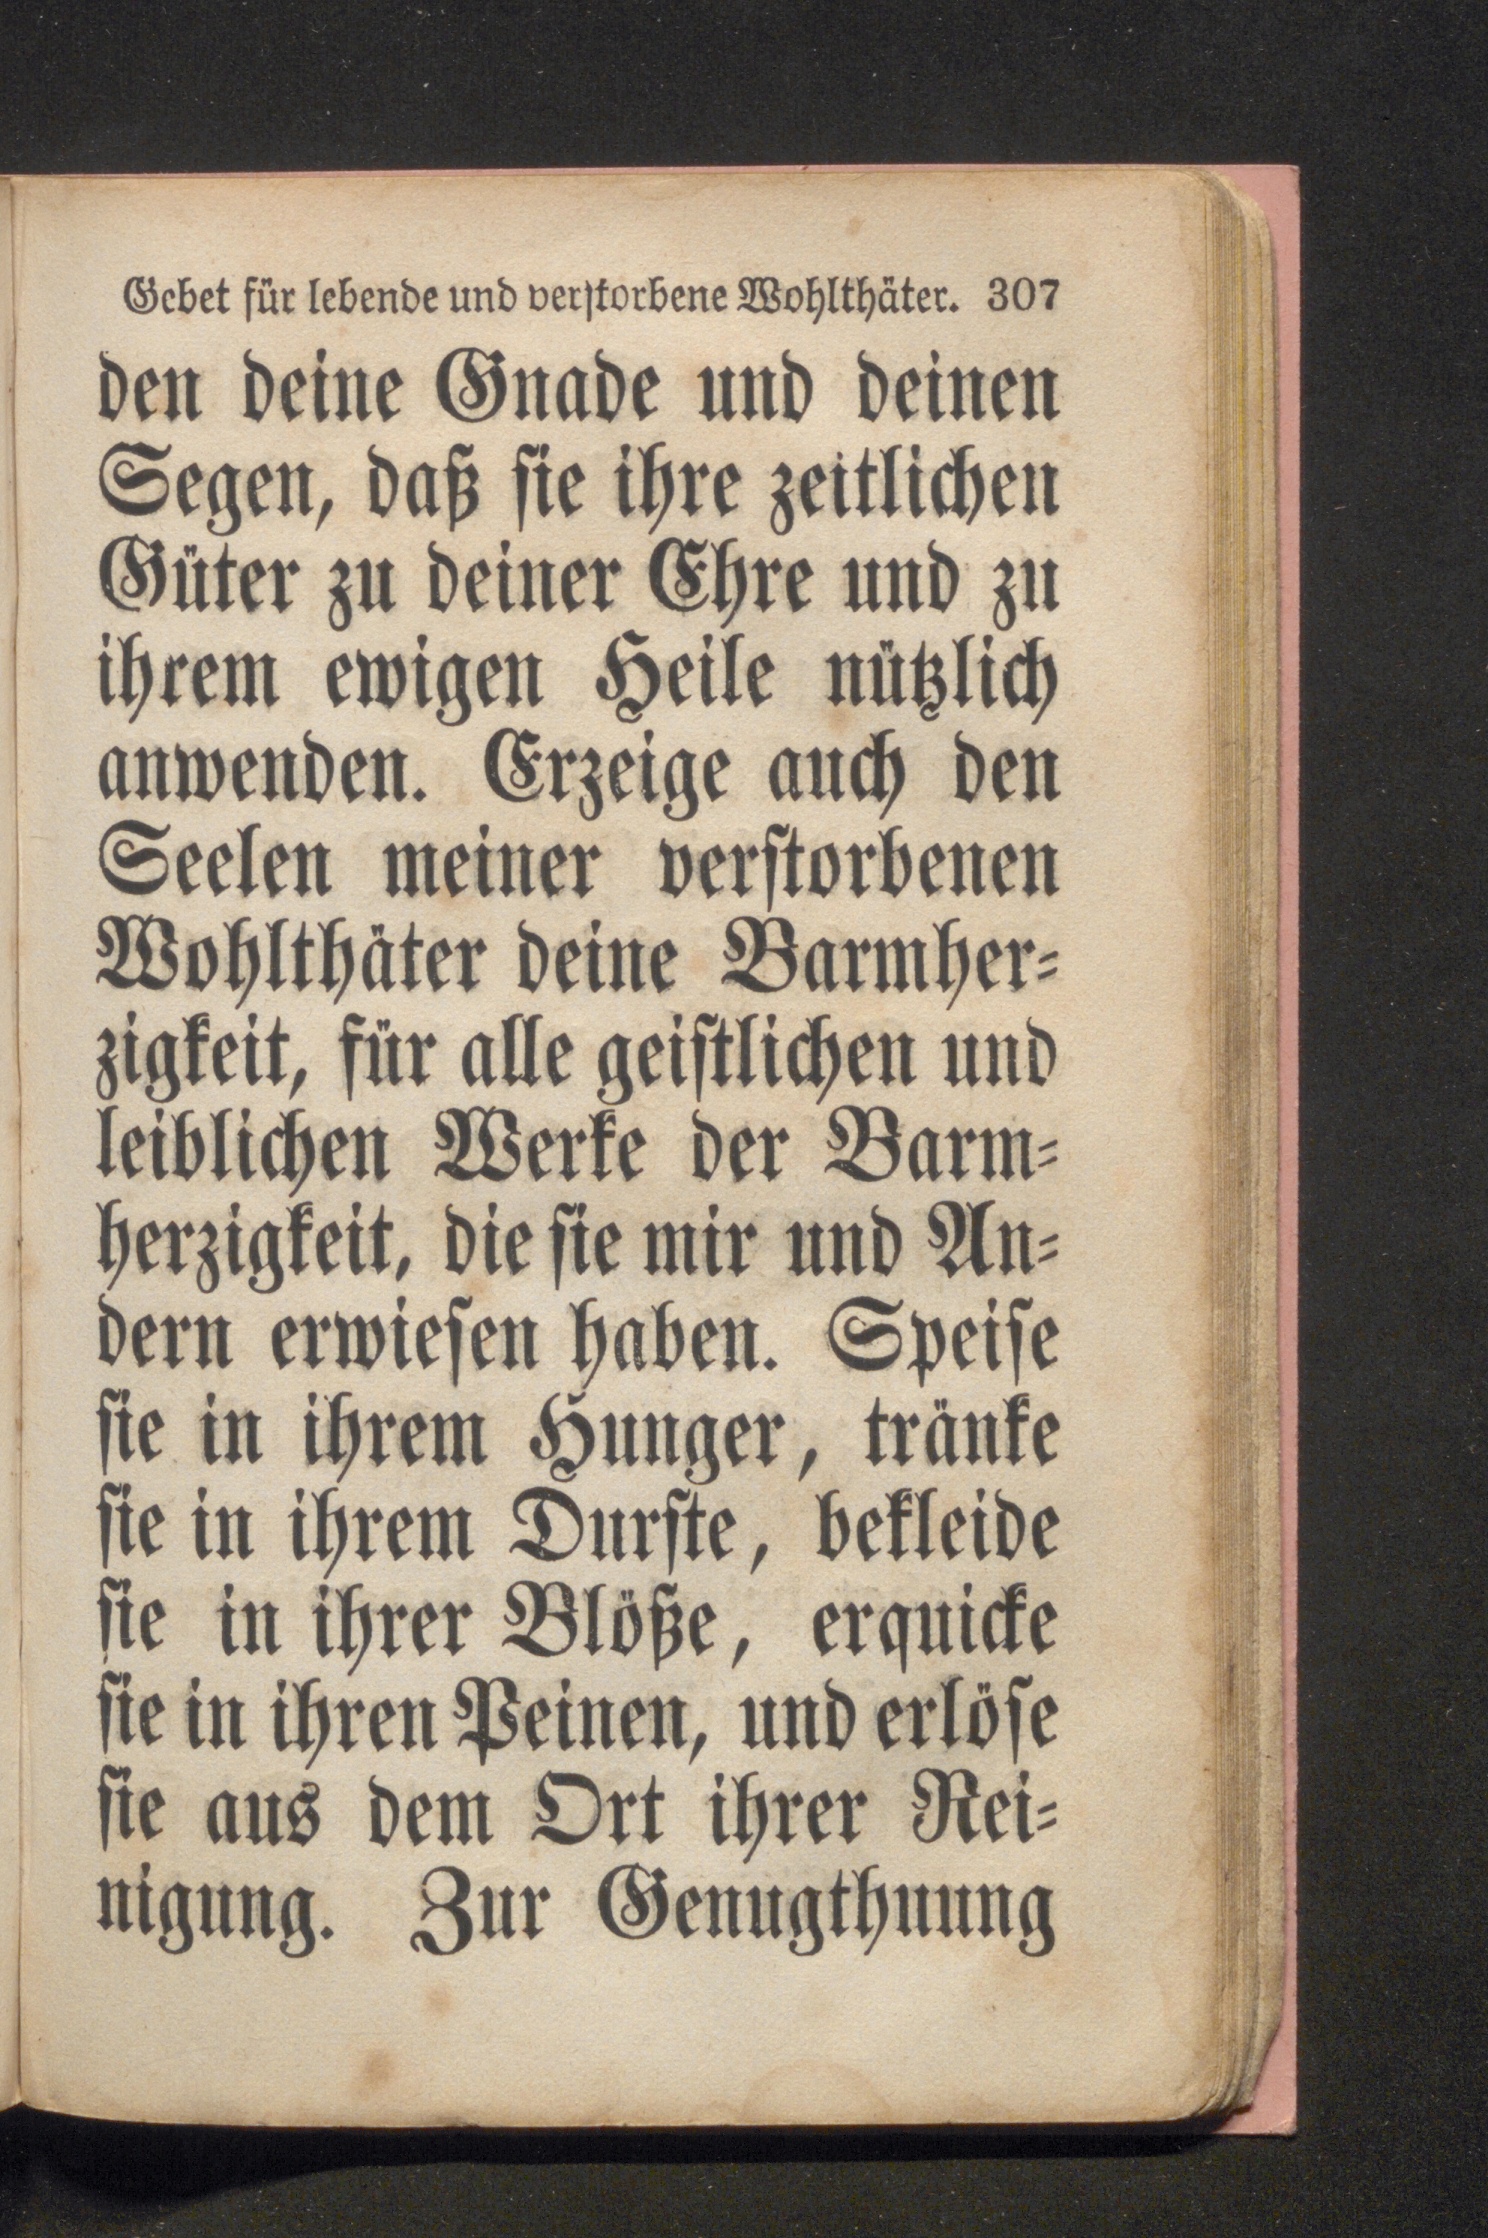 Gebet für lebende und verstorbene Wohlthäter. 307
den deine Gnade und deinen
Segen, daß sie ihre zeitlichen
Güter zu deiner Ehre und zu
ihrem ewigen Heile nützlich
anwenden. Erzeige auch den
Seelen meiner verstorbenen
Wohlthäter deine Barmher-
zigkeit, für alle geistlichen und
leiblichen Werke der Barm-
herzigkeit, die sie mir und An-
dern erwiesen haben. Speise
sie in ihrem Hunger, tränke
sie in ihrem Durste, bekleide
sie in ihrer Blöße, erquicke
sie in ihren Peinen, und erlöse
sie aus dem Ort ihrer Rei-
nigung. Zur Genugthuung